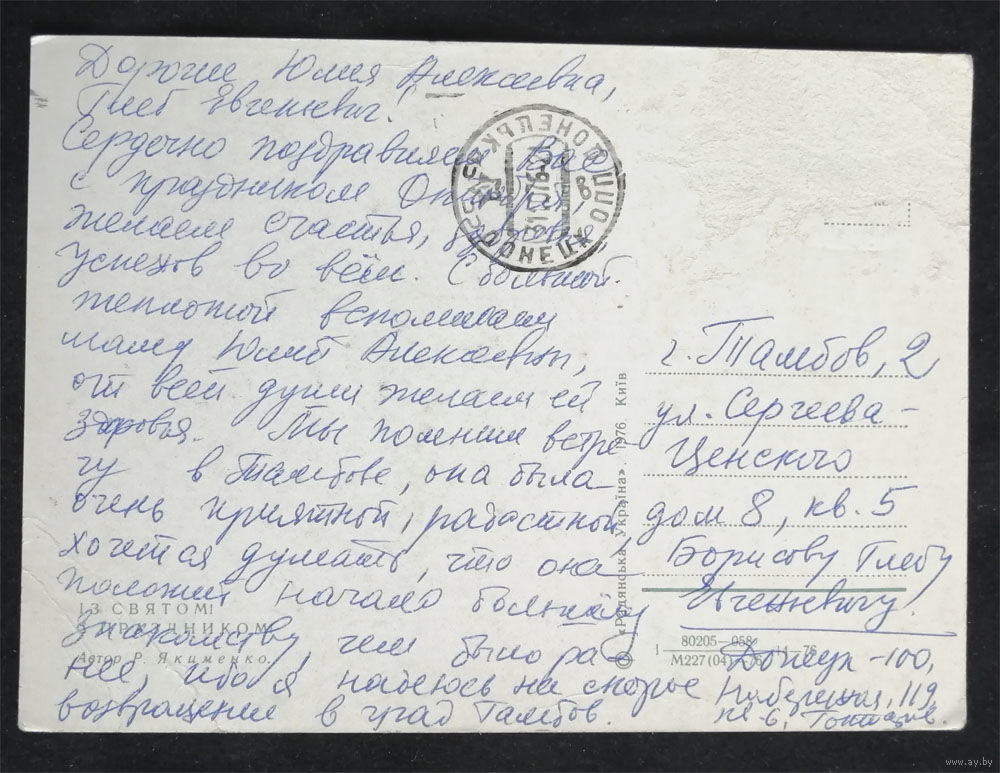 Дорогие Юлия Алексеевна,
Глеб Евгеньевич.
Сердечно поздравляем Вас
с праздником Октября,
желаем счастья, здоровья
успехов во всём. С большой
теплотой вспоминаем
маму Юлии Алексеевны,
от всей души желаем ей
здоровья. Мы помним встре-
чу в Тамбове, она была
очень приятной, радостной,
хочется думать, что она
положит начало большему
знакомству, чем было ра-
нее, ибо я надеюсь на скорое
возвращение в град Тамбов.
ДОНЕЦЬК
ДОНЕЦК
г. Тамбов, 2
ул. Сергеева-
Ценского
дом 8, кв. 5
Борисову Глебу
Евгеньевичу.
Донецк-100,
119,
ІЗ СВЯТОМ!
С ПРАЗДНИКОМ!
Автор Р. Якименко.
© «Радянська Україна». 1976. Київ
80205-058
М227(04)-76
www.ay.by